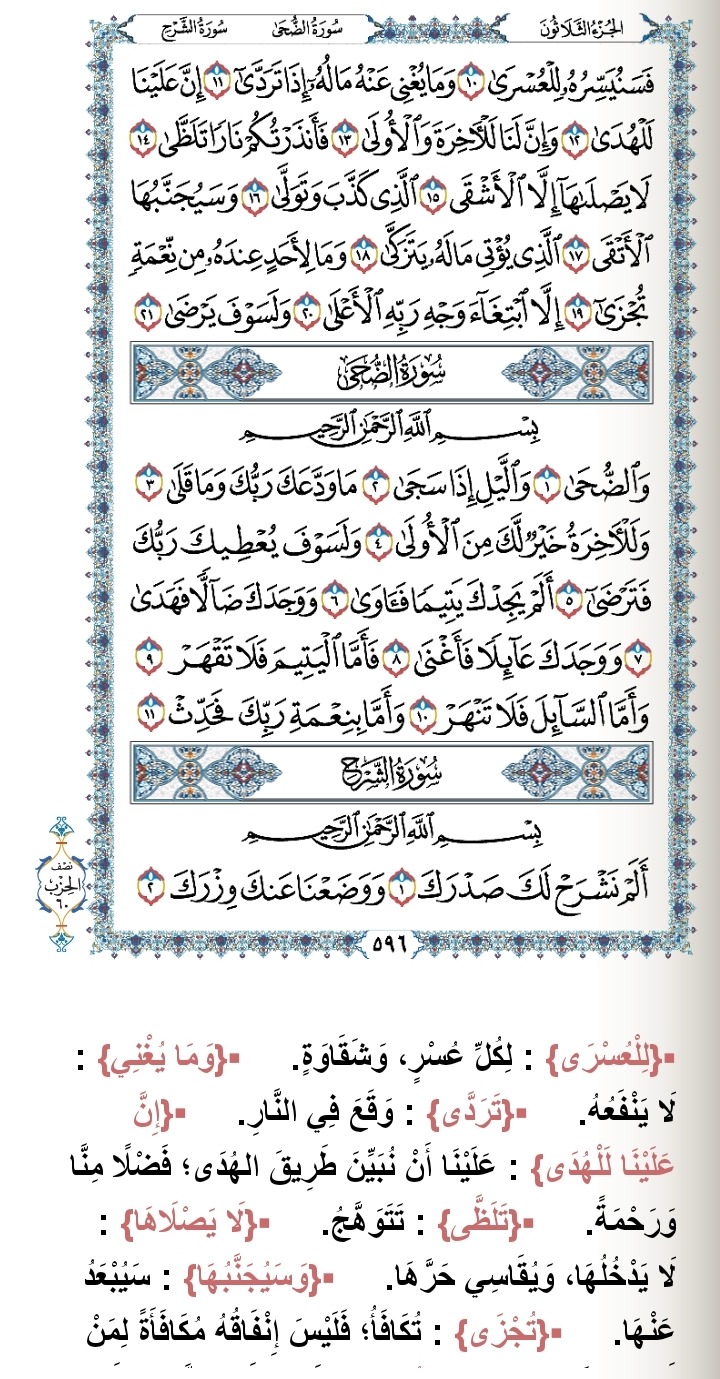 الجُزْءُ الثَّلَاثُونَ سُورَةُ الضُّحَىٰ سُورَةُ الشَّرْحِ
فَسَنُيَسِّرُهُۥ لِلْعُسْرَىٰ ١٠ وَمَا يُغْنِى عَنْهُ مَالُهُۥٓ إِذَا تَرَدَّىٰٓ ١١ إِنَّ عَلَيْنَا
لَلْهُدَىٰ ١٢ وَإِنَّ لَنَا لَلْءَاخِرَةَ وَٱلْأُولَىٰ ١٣ فَأَنذَرْتُكُمْ نَارًا تَلَظَّىٰ ١٤
لَا يَصْلَىٰهَآ إِلَّا ٱلْأَشْقَى ١٥ ٱلَّذِى كَذَّبَ وَتَوَلَّىٰ ١٦ وَسَيُجَنَّبُهَا
ٱلْأَتْقَى ١٧ ٱلَّذِى يُؤْتِى مَالَهُۥ يَتَزَكَّىٰ ١٨ وَمَا لِأَحَدٍ عِندَهُۥ مِن نِّعْمَةٍ
تُجْزَىٰٓ ١٩ إِلَّا ٱبْتِغَآءَ وَجْهِ رَبِّهِ ٱلْأَعْلَىٰ ٢٠ وَلَسَوْفَ يَرْضَىٰ ٢١
سُورَةُ الضُّحَىٰ
بِسْمِ ٱللَّهِ ٱلرَّحْمَٰنِ ٱلرَّحِيمِ
وَٱلضُّحَىٰ ١ وَٱلَّيْلِ إِذَا سَجَىٰ ٢ مَا وَدَّعَكَ رَبُّكَ وَمَا قَلَىٰ ٣
وَلَلْءَاخِرَةُ خَيْرٌ لَّكَ مِنَ ٱلْأُولَىٰ ٤ وَلَسَوْفَ يُعْطِيكَ رَبُّكَ
فَتَرْضَىٰٓ ٥ أَلَمْ يَجِدْكَ يَتِيمًا فَـَٔاوَىٰ ٦ وَوَجَدَكَ ضَآلًّا فَهَدَىٰ
٧ وَوَجَدَكَ عَآئِلًا فَأَغْنَىٰ ٨ فَأَمَّا ٱلْيَتِيمَ فَلَا تَقْهَرْ ٩
وَأَمَّا ٱلسَّآئِلَ فَلَا تَنْهَرْ ١٠ وَأَمَّا بِنِعْمَةِ رَبِّكَ فَحَدِّثْ ١١
سُورَةُ الشَّرْحِ
بِسْمِ ٱللَّهِ ٱلرَّحْمَٰنِ ٱلرَّحِيمِ
أَلَمْ نَشْرَحْ لَكَ صَدْرَكَ ١ وَوَضَعْنَا عَنكَ وِزْرَكَ ٢
نصف
الحزب
٦٠
٥٩٦
▪{لِلْعُسْرَى} : لِكُلِّ عُسْرٍ، وَشَقَاوَةٍ. ▪{وَمَا يُغْنِي} :
لَا يَنْفَعُهُ. ▪{تَرَدَّى} : وَقَعَ فِي النَّارِ. ▪{إِنَّ
عَلَيْنَا لَلْهُدَى} : عَلَيْنَا أَنْ نُبَيِّنَ طَرِيقَ الهُدَى؛ فَضْلًا مِنَّا
وَرَحْمَةً. ▪{تَلَظَّى} : تَتَوَهَّجُ. ▪{لَا يَصْلَاهَا} :
لَا يَدْخُلُهَا، وَيُقَاسِي حَرَّهَا. ▪{وَسَيُجَنَّبُهَا} : سَيُبْعَدُ
عَنْهَا. ▪{تُجْزَى} : تُكَافَأُ؛ فَلَيْسَ إِنْفَاقُهُ مُكَافَأَةً لِمَنْ